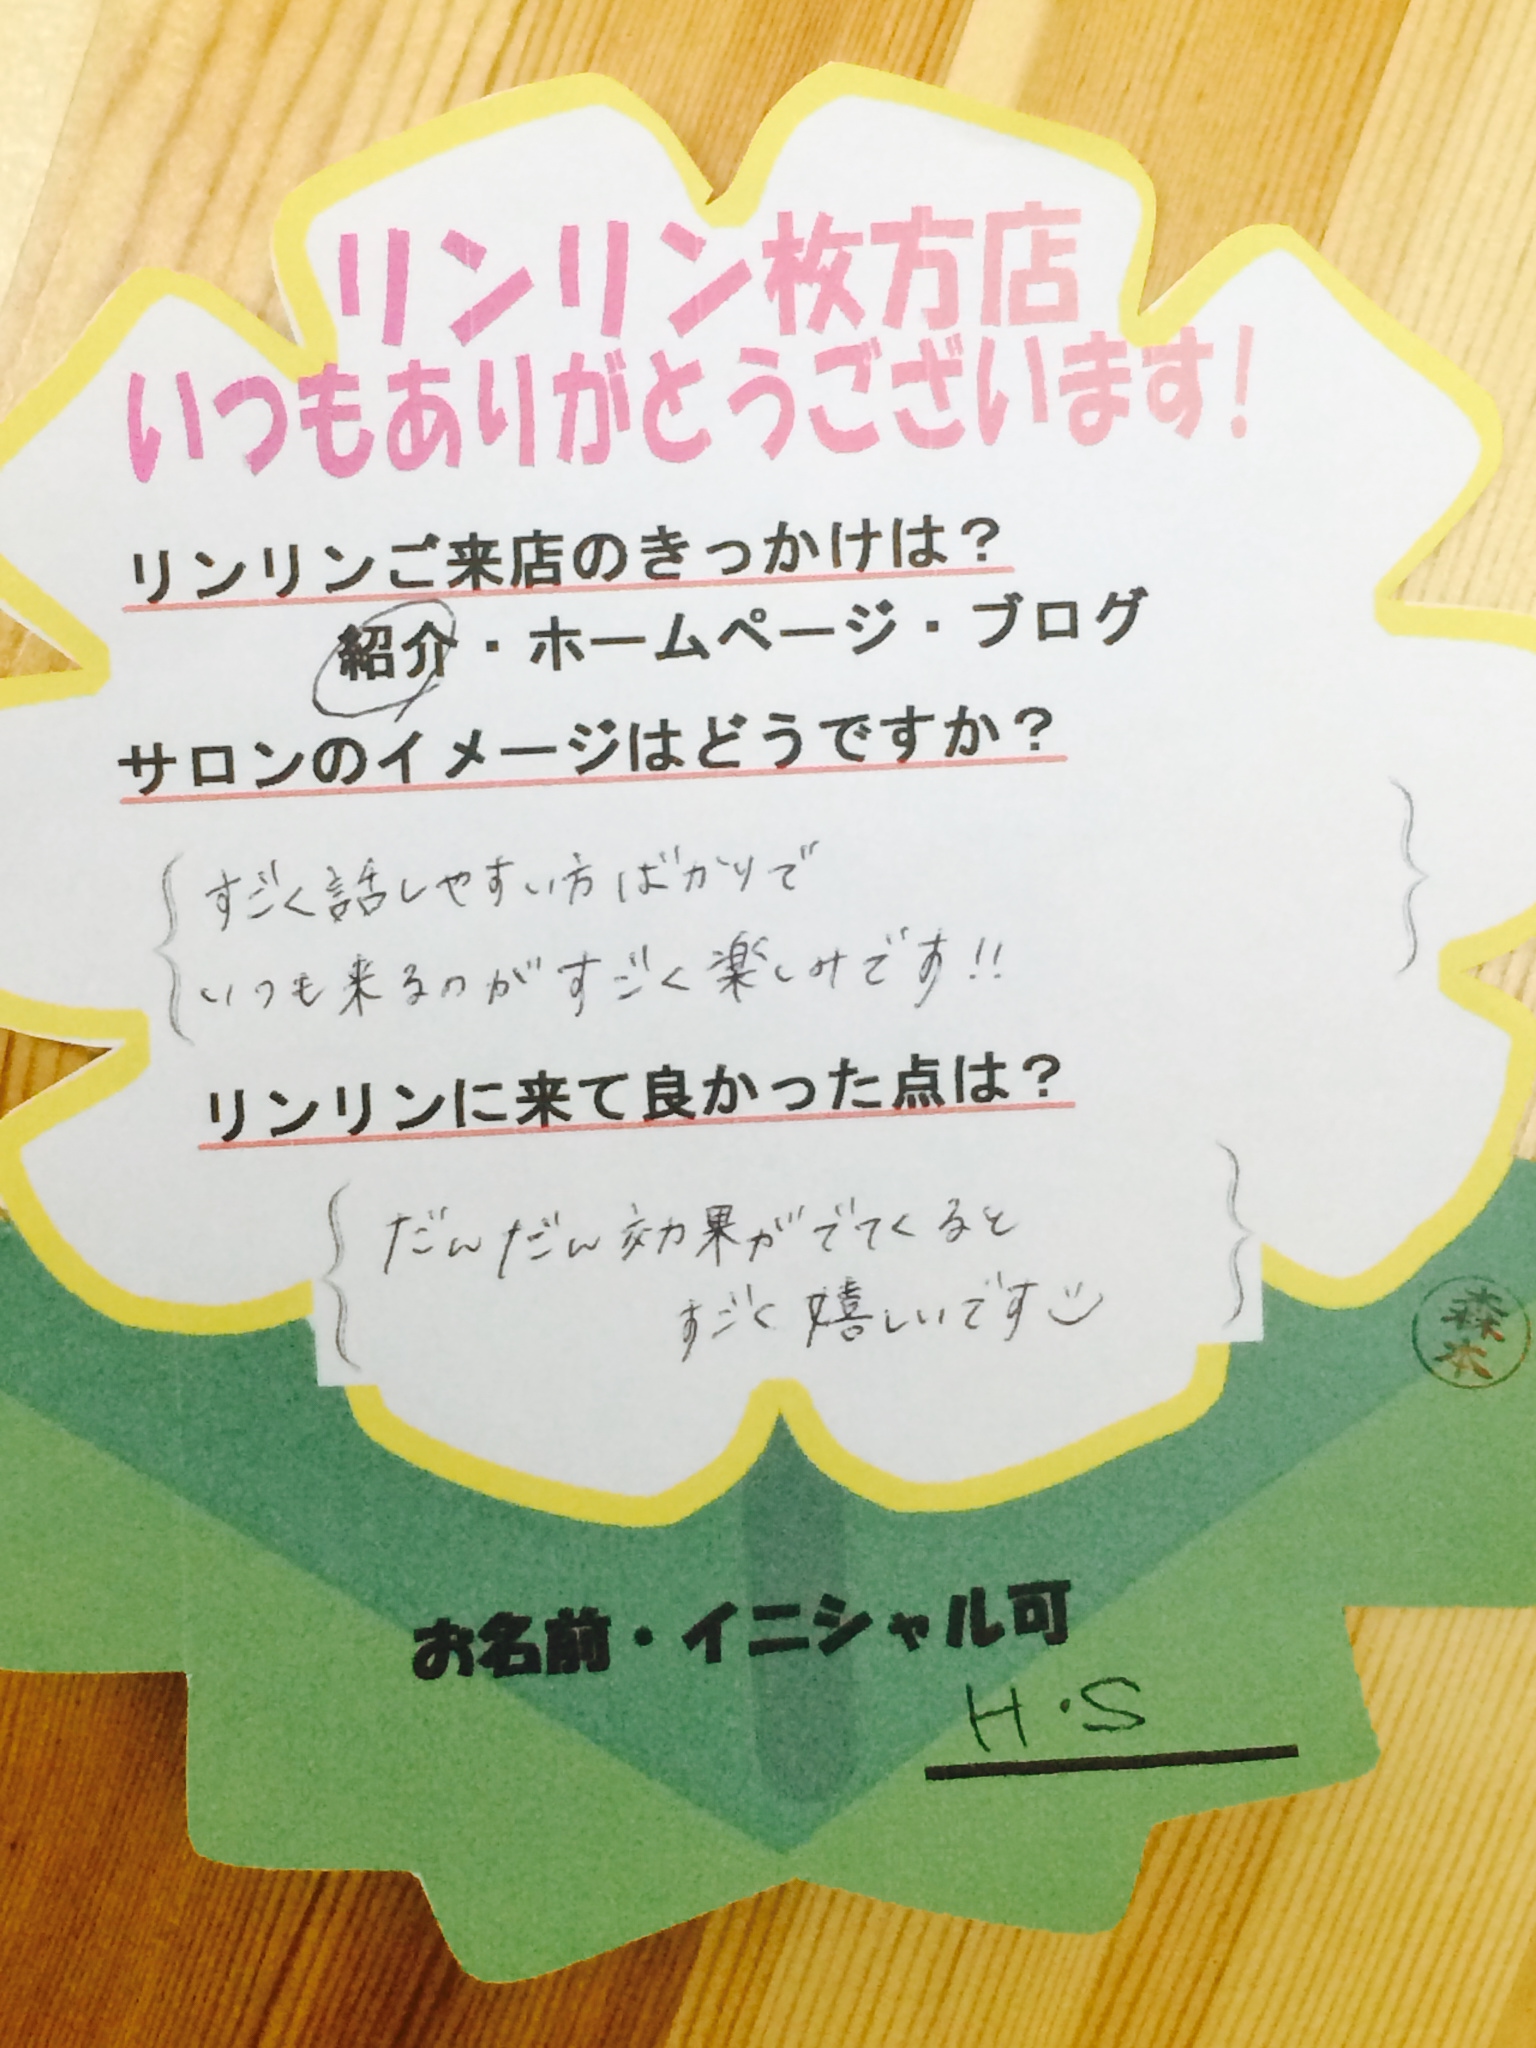 リンリン枚方店
いつもありがとうございます!
リンリンご来店のきっかけは?
紹介・ホームページ・ブログ
サロンのイメージはどうですか?
すごく話しやすい方ばかりで
いつも来るのがすごく楽しみです!!
リンリンに来て良かった点は?
だんだん効果がでてくると
すごく嬉しいです
森本
お名前・イニシャル可
H・S